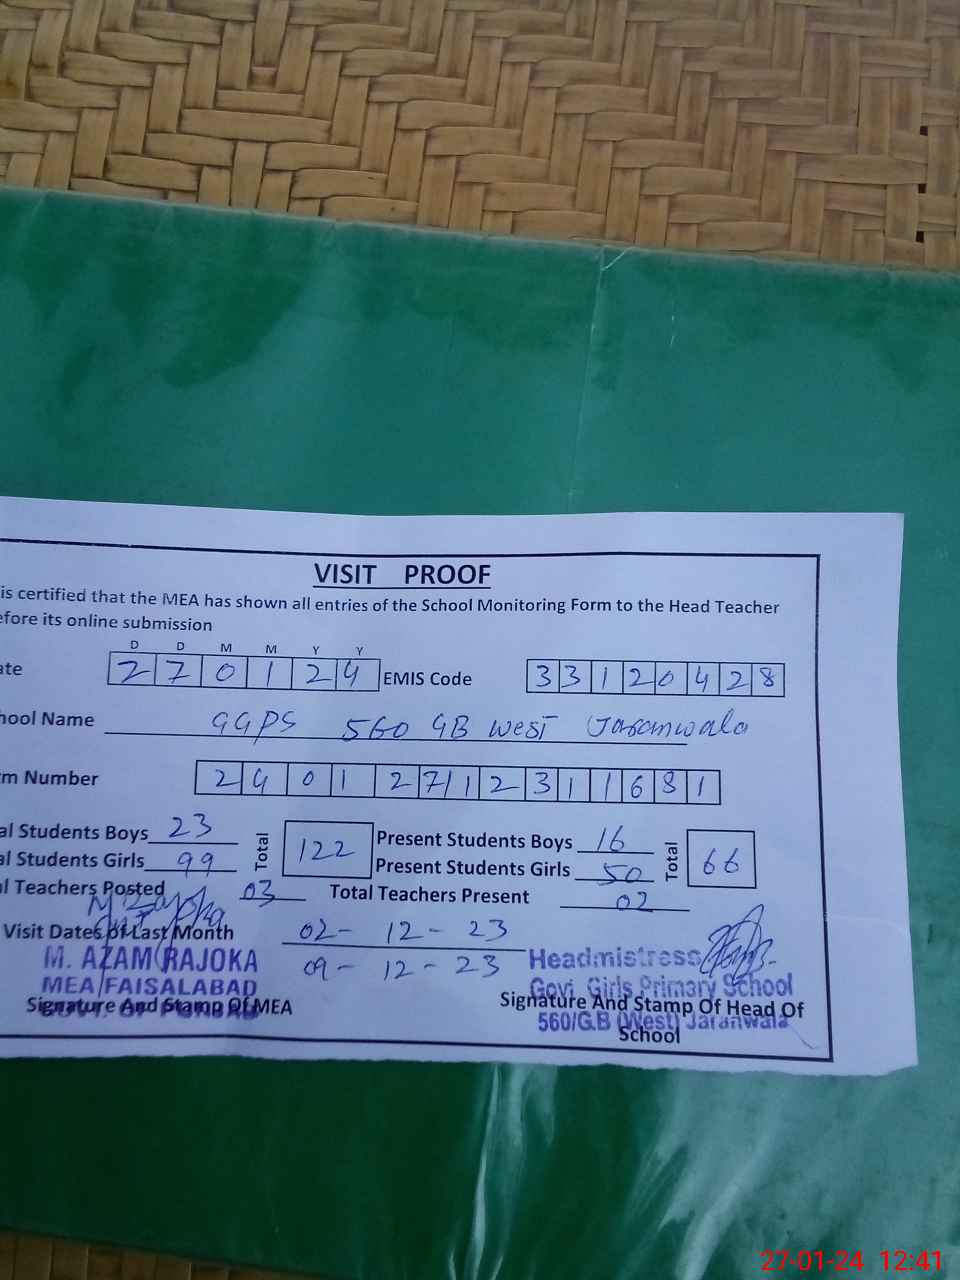 VISIT PROOF
is certified that the MEA has shown all entries of the School Monitoring Form to the Head Teacher
efore its online submission
D D M M Y Y
ate 2 7 0 1 2 4 EMIS Code 3 3 1 2 0 4 2 8
hool Name GGPS 560 GB West Jaranwala
m Number 2 4 0 1 2 7 1 2 3 1 1 6 8 1
al Students Boys 23 Total 122 Present Students Boys 16 Total 66
al Students Girls 99 Present Students Girls 50
l Teachers Posted 03 Total Teachers Present 02
Visit Dates of Last Month 02- 12- 23
09- 12- 23
M. AZAM RAJOKA
MEA FAISALABAD
GOVT. OF PUNJAB
Signature And Stamp Of MEA
Headmistress
Govt. Girls Primary School
560/G.B (West) Jaranwala
Signature And Stamp Of Head Of
School
27-01-24 12:41